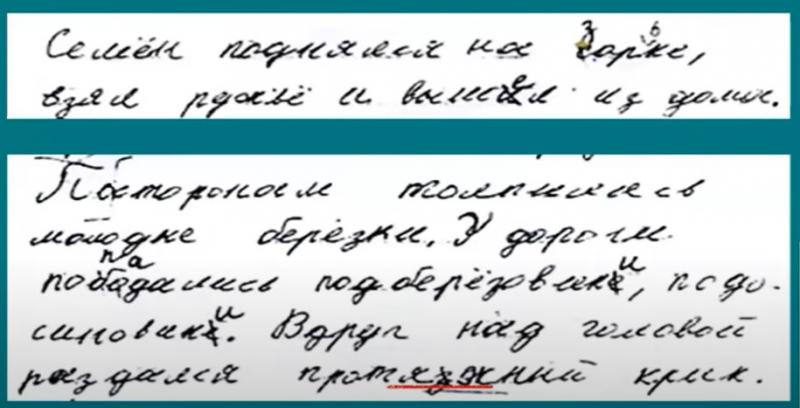 Семён поднялся на зорьке,
взял ружьё и вышел из дома.
Посторонам толпились
молодые берёзки. У дороги
попадались подберёзовики, подо-
синовики. Вдруг над головой
раздался протязжный крик.